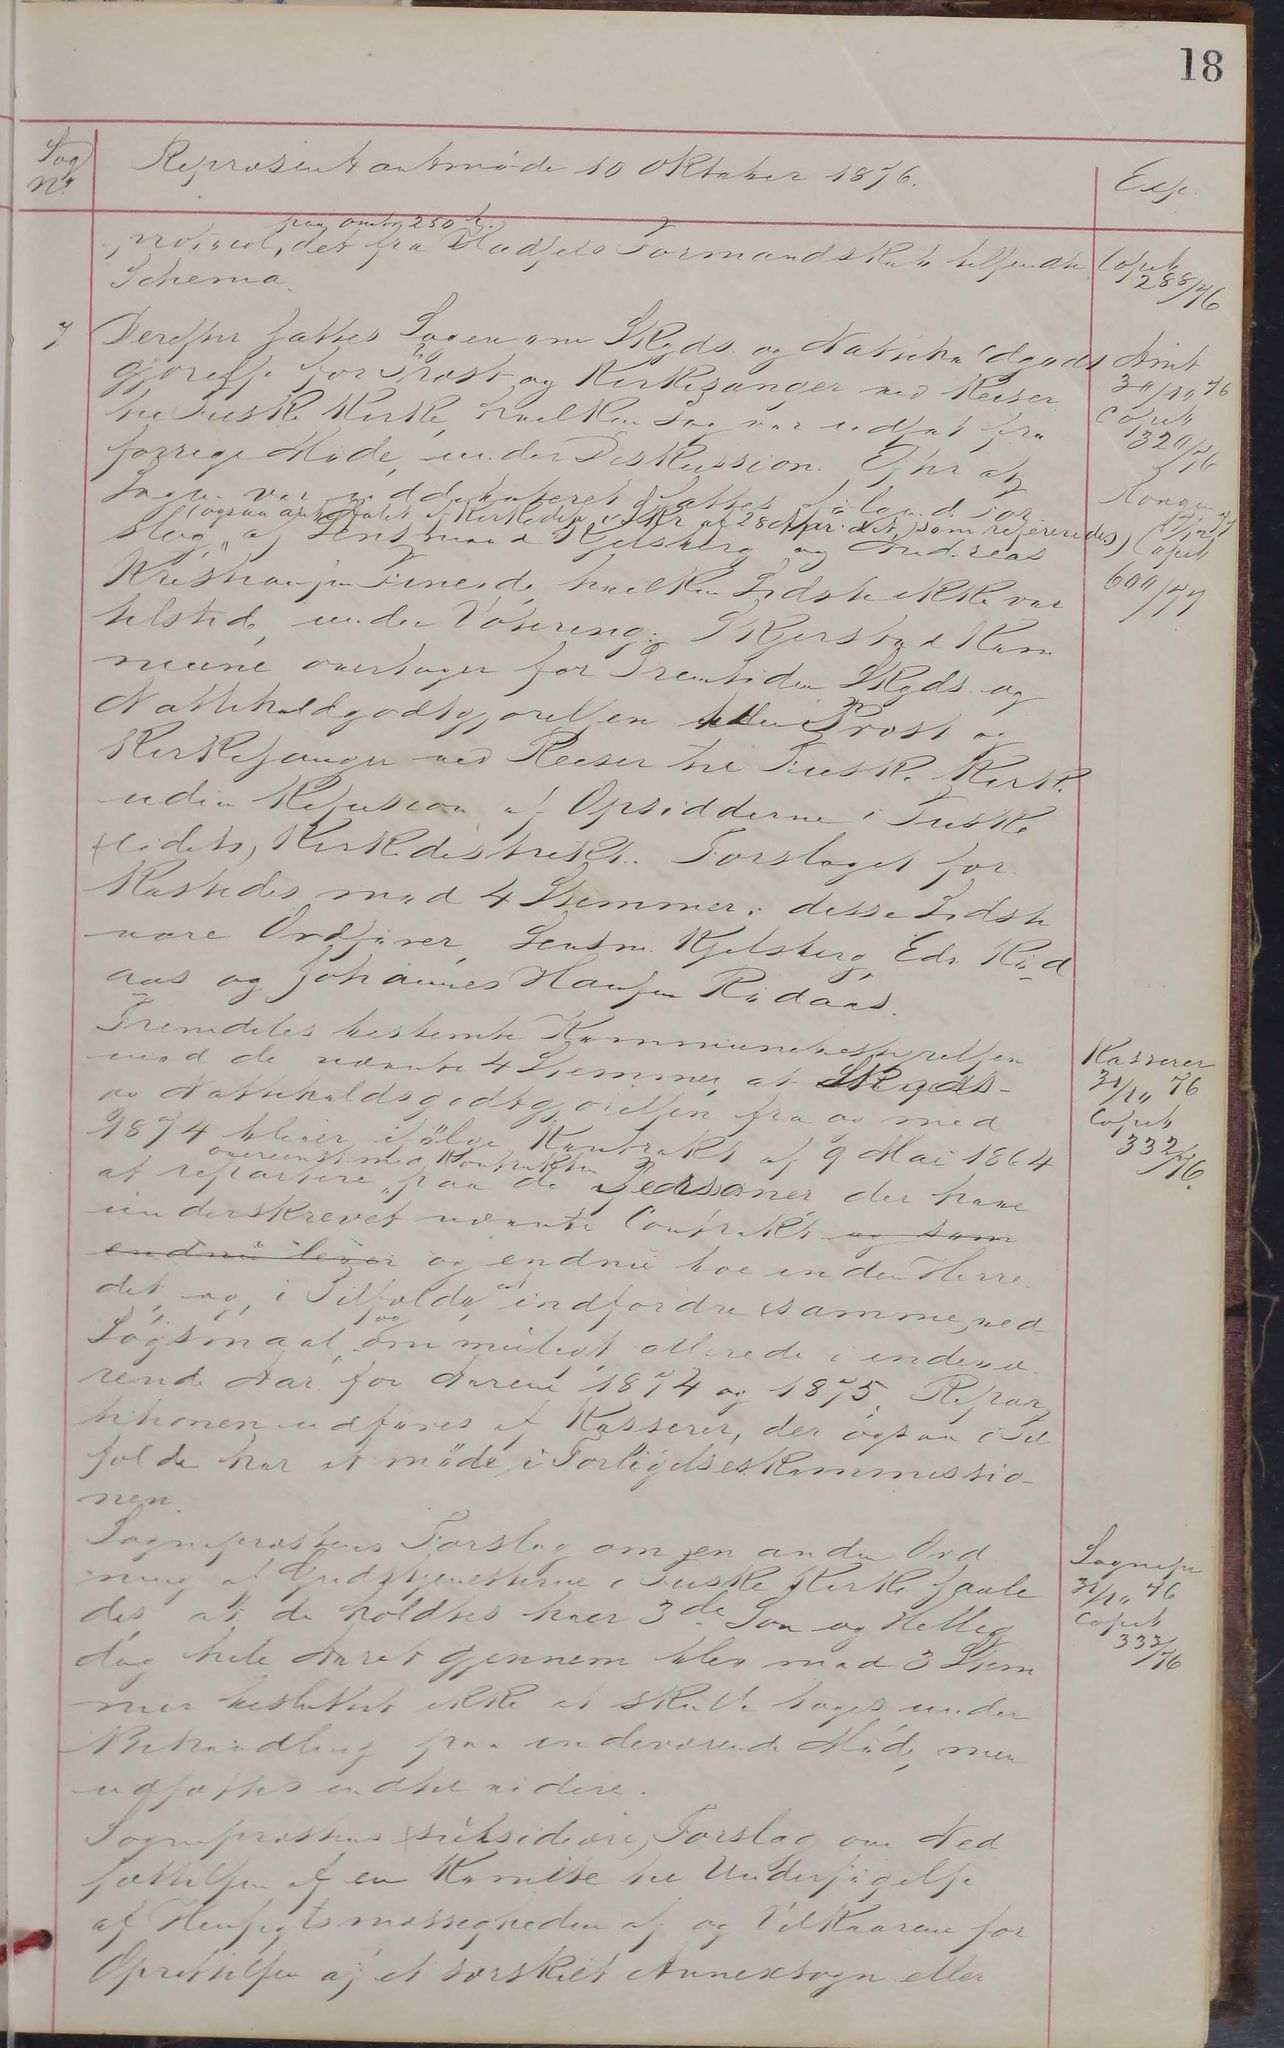 18
Sag
No.
Repræsentantmøde 10 Oktober 1876.
Exp.
paa omtr. 250 
protocol, det fra Hadsels Formandskab tilsendte
Schema.
Copieb
288/76
7. Derefter sattes Sagen om Skyds- og Natteholdgodt
gjørelse for Præst og Kirkesanger ved Reiser
til Fuske Kirke, hvilken Sag var udsat fra
forrige Møde, under Diskussion. Efter at
Sagen var uddebateret sattes følgende For
(ogsaa anbefalet af Kirkedep. i Skr. af 28 Mar. d. A., som refereredes)
slag af Lensmand Kjelsberg og Andreas
Kristiansen Fineide, hvilken Sidste ikke var
tilstede, under Votering: Skjerstad Kom
mune overtager for Fremtiden Skyds- og
Natteholdgodtgjørelsen til Præst og
Kirkesanger ved Reiser til Fuske Kirke
uden Refusion af Opsidderne i Fuske
(eidets) Kirkedistrikt. Forslaget for
kastedes mod 4 Stemmer; disse Sidste
vare Ordfører, Lensm. Kjelsberg, Edv. Rød
aas og Johannes Hansen Rødaas.
Amt
31/10 76
Copieb
320/76
Copieb
600/77
Fremdeles bestemte Kommunebestyrelsen
mod de nævnte 4 Stemmer, at Skyds-
og Natteholdsgodtgjørelsen fra og med
1874 bliver ifølge Kontrakt af 9 Mai 1864
overensst. med Kontrakten
at repartere paa de Personer, der have
underskrevet nævnte Contrakt og som
endnu lever og endnu bo inden Herre
det, og, i Tilfælde, at indfordre samme ved
Søgsmaal, og om muligt allerede i indevæ
rende Aar for Aarene 1874 og 1875. Repar
titionen udføres af Kasserer, der ogsaa i Til
fælde har at møde i Forligelseskommissio
nen.
Kasserer
31/10 76
Copieb
332/76.
Sognepræstens Forslag om en anden Ord
ning af Gudstjenesterne i Fuske Kirke saale
des, at de holdtes hver 3de Søn og Hellig
dag hele Aaret gjennem blev mod 3 Stem
mer besluttet ikke at skulle tages under
Behandling paa indeværende Møde, men
udsættes indtil videre.
Sognepr
31/10 76
Copieb
333/76
Sognepræstens (subsidiære) Forslag om Ned
sættelsen af en Komite til Undersøgelse
af Hensigtsmæssigheden af og Vilkaarene for
Oprettelsen af et særskilt Annexsogn eller